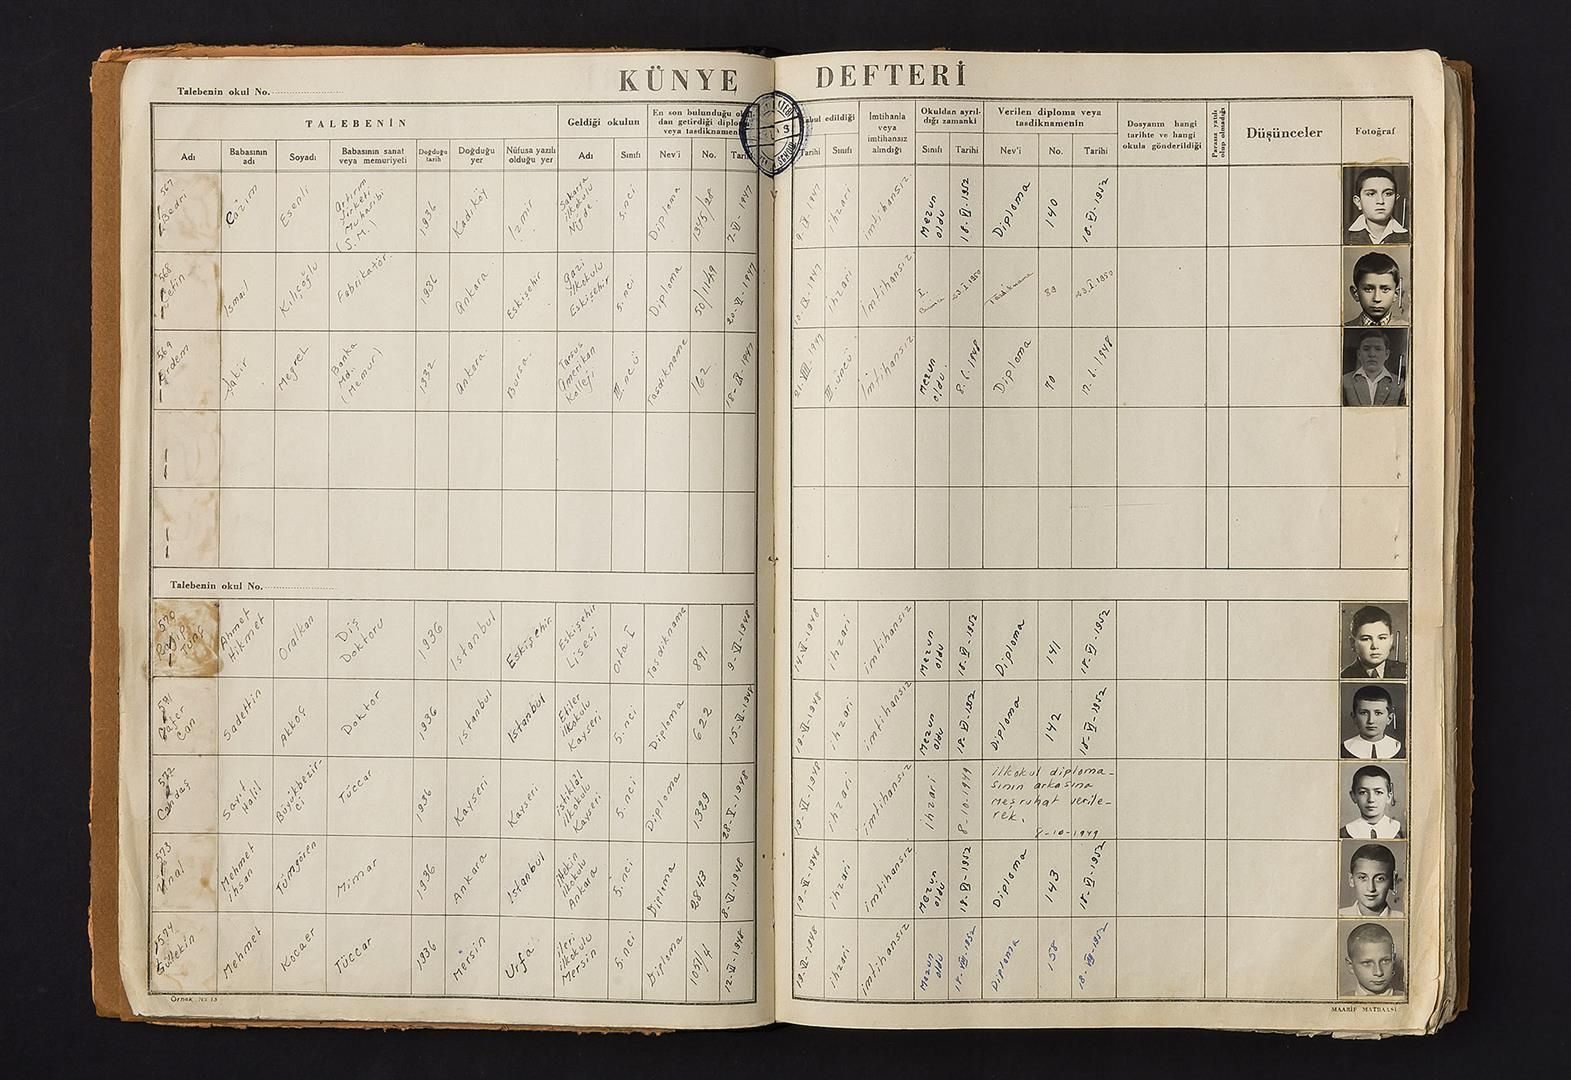 KÜNYE DEFTERİ
Talebenin okul No.
TALEBENİN
Geldiği okulun
En son bulunduğu
dan getirdiği
veya tasdiknamen
edildiği
İmtihanla
veya
imtihansız
alındığı
Okuldan ayrıl-
dığı zamanki
Verilen diploma veya
tasdiknamenin
Dosyanın hangi
tarihte ve hangi
okula gönderildiği
Parasız yatılı
olup olmadığı
Düşünceler
Fotoğraf
Adı
Babasının
adı
Soyadı
Babasının sanat
veya memuriyeti
Doğduğu
tarih
Doğduğu
yer
Nüfusa yazılı
olduğu yer
Adı
Sınıfı
Nev'i
No.
Tarihi
Sınıfı
Sınıfı
Tarihi
Nev'i
No.
Tarihi
567
Bedri
Kâzım
Esenli
Şirketi
Muhasibi
(S.M.)
1936
Kadıköy
İzmir
Sakarya
ilkokulu
Niğde
5.nci
Diploma
1345/28
7-VI-1947
9-IX-1947
ihzari
imtihansız
Mezun
oldu
18-VI-1952
Diploma
140
18-VI-1952
568
Çetin
İsmail
Kılıçoğlu
Fabrikatör
1936
Ankara
Eskişehir
Gazi
ilkokulu
Eskişehir
5.nci
Diploma
50/1149
20-VI-1947
10-IX-1947
ihzari
imtihansız
I.
23.I.1950
Tasdikname
89
23.I.1950
569
Erdem
Şakir
Megrel
Banka
Md.
(Memur)
1932
Ankara
Bursa
Tarsus
Amerikan
Kolleği
III.ncü
Tasdikname
162
18-IX-1947
21-VIII-1947
III.üncü
imtihansız
Mezun
oldu
Diploma
70
Talebenin okul No.
570
Tunç
Ahmet
Hikmet
Oralkan
Diş
Doktoru
1936
İstanbul
Eskişehir
Eskişehir
Lisesi
Orta I
Tasdikname
891
9-VI-1948
14-VI-1948
ihzari
imtihansız
Mezun
oldu
18-VI-1952
Diploma
141
18-VI-1952
571
Can
Sadettin
Akkoç
Doktor
1936
İstanbul
İstanbul
Etiler
ilkokulu
Kayseri
5.nci
Diploma
622
15-VI-1948
ihzari
imtihansız
Mezun
oldu
18-VI-1952
Diploma
142
18-VI-1952
572
Candaş
Sait
Halil
Büyükbezir-
ci
Tüccar
1936
Kayseri
Kayseri
istiklâl
ilkokulu
Kayseri
5.nci
Diploma
1329
28-V-1948
19-VI-1948
ihzari
imtihansız
ihzari
8-10-1949
ilkokul diploma-
sının arkasına
meşruhat verile-
rek.
8-10-1949
573
Ünal
Mehmet
İhsan
Tümgören
Mimar
1936
Ankara
İstanbul
ilkokulu
Ankara
5.nci
Diploma
2843
8-VI-1948
19-VI-1948
ihzari
imtihansız
Mezun
oldu
18-VI-1952
Diploma
143
18-VI-1952
574
Gültekin
Mehmet
Kocaer
Tüccar
1936
Mersin
Urfa
ileri
ilkokulu
Mersin
5.nci
Diploma
1051/4
12-VI-1948
19-VI-1948
ihzari
imtihansız
Mezun
oldu
18-VIII-1952
Diploma
158
18-VIII-1952
Örnek No 13
MAARİF MATBAASI